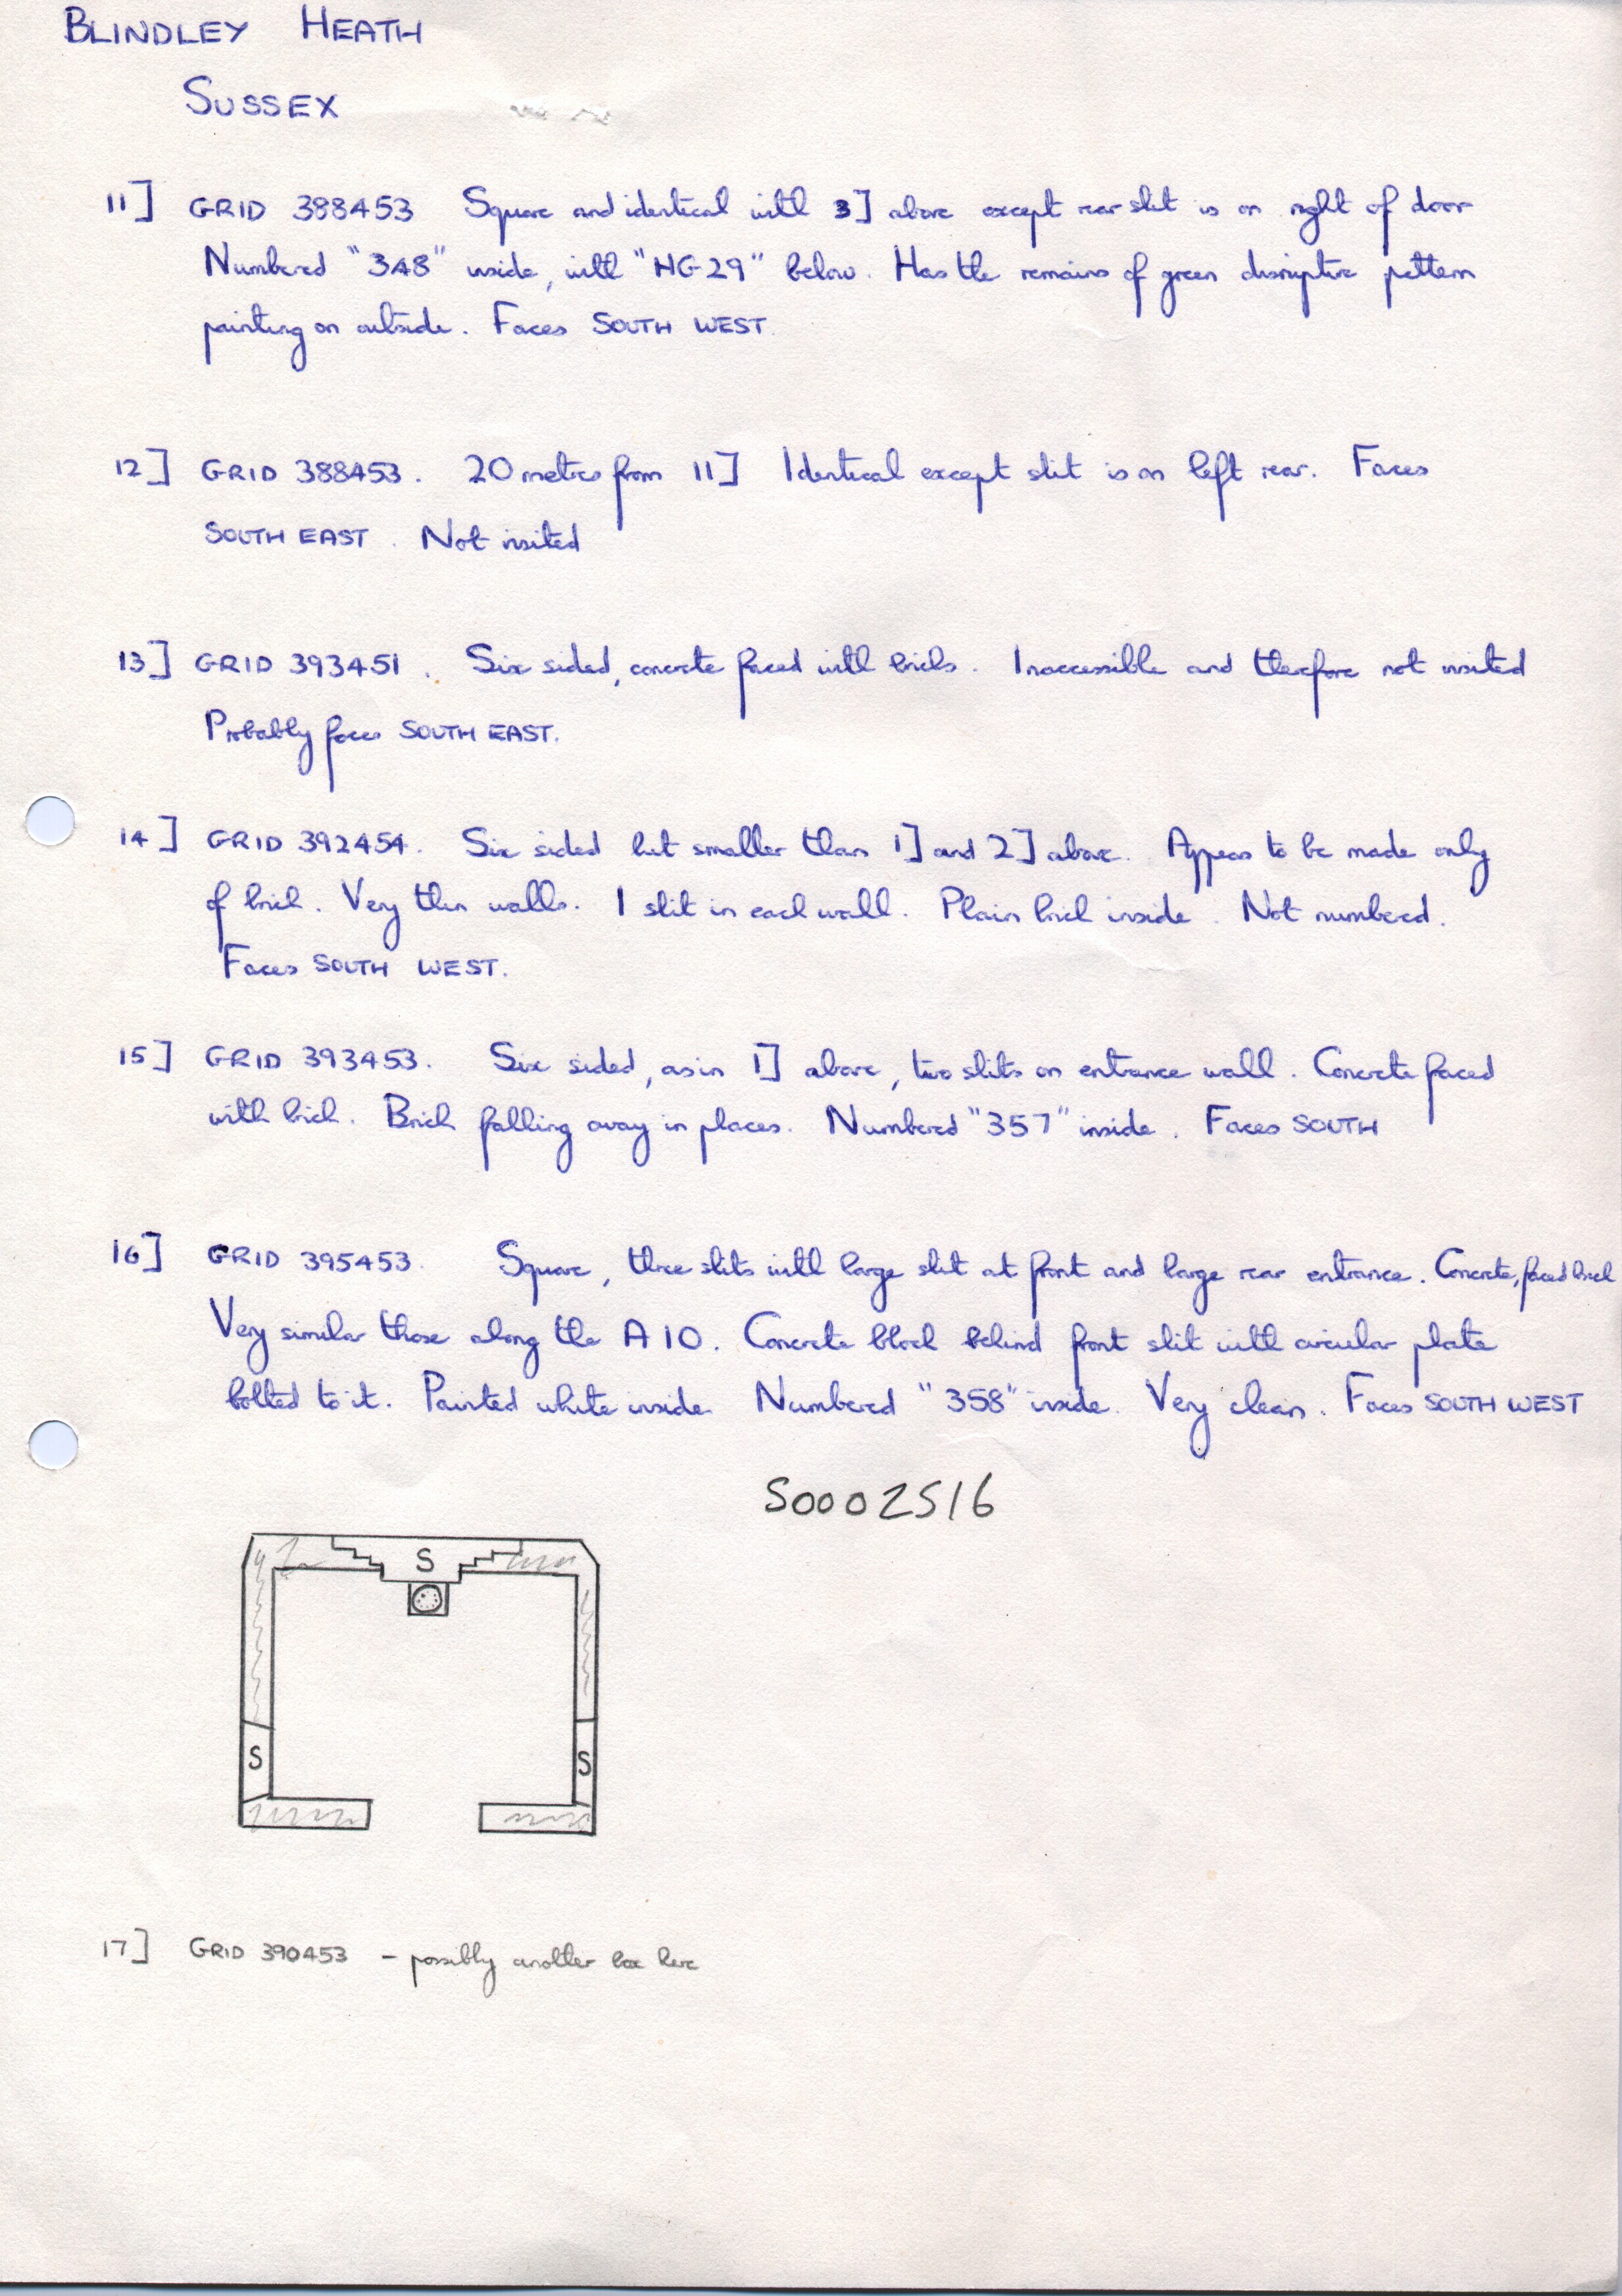 BLINDLEY HEATH
SUSSEX
11] GRID 388453 Square and identical with 3] above except rear slit is on right of door
Numbered "348" inside, with "HG-29" below. Has the remains of green disruptive pattern
painting on outside. Faces SOUTH WEST.
12] GRID 388453. 20 metres from 11] Identical except slit is on left rear. Faces
SOUTH EAST. Not visited
13] GRID 393451. Six sided, concrete faced with bricks. Inaccessible and therefore not visited
Probably faces SOUTH EAST.
14] GRID 392454. Six sided but smaller than 1] and 2] above. Appears to be made only
of brick. Very thin walls. 1 slit in each wall. Plain brick inside. Not numbered.
Faces SOUTH WEST.
15] GRID 393453. Six sided, as in 1] above, two slits on entrance wall. Concrete faced
with brick. Brick falling away in places. Numbered "357" inside. Faces SOUTH
16] GRID 395453. Square, three slits with large slit at front and large rear entrance. Concrete, faced brick
Very similar those along the A10. Concrete block behind front slit with circular plate
bolted to it. Painted white inside. Numbered "358" inside. Very clean. Faces SOUTH WEST
S0002516
S
S
S
17] GRID 390453 - possibly another box here